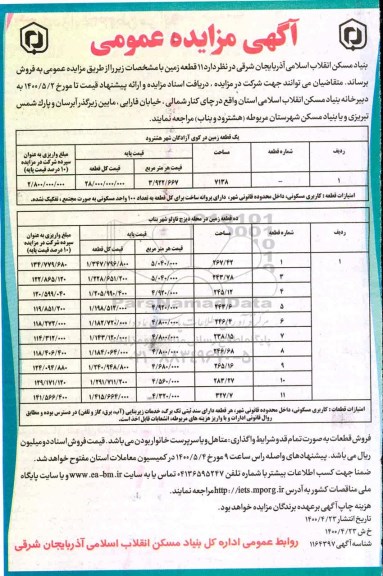 آگهی مزایده عمومی
بنیاد مسکن انقلاب اسلامی آذربایجان شرقی در نظر دارد ۱۱ قطعه زمین با مشخصات زیر را از طریق مزایده عمومی به فروش
برساند. متقاضیان می توانند جهت شرکت در مزایده ، دریافت اسناد مزایده و ارائه پیشنهاد قیمت تا مورخ ۱۴۰۰/۵/۲ به
دبیرخانه بنیاد مسکن انقلاب اسلامی استان واقع در چای کنار شمالی ، خیابان فارابی ، مابین زیرگذر آبرسان و پارک شمس
تبریزی و یا بنیاد مسکن شهرستان مربوطه (هشترود و بناب) مراجعه نمایند.
یک قطعه زمین در کوی آزادگان شهر هشترود
ردیف شماره قطعه مساحت قیمت پایه مبلغ واریزی به عنوان سپرده شرکت در مزایده (۱۰ درصد قیمت پایه)
قیمت هر متر مربع قیمت کل قطعه
۱ – ۷۱۳۸ ۳/۹۲۲/۶۶۷ ۲۸/۰۰۰/۰۰۰/۰۰۰ ۲/۸۰۰/۰۰۰/۰۰۰
امتیازات قطعه : کاربری مسکونی، داخل محدوده قانونی شهر، دارای پروانه ساخت برای کل قطعه به تعداد ۱۰۰ واحد مسکونی به صورت مجتمع ، تفکیک نشده.
ده قطعه زمین در محله دیزج ناولو شهر بناب
ردیف شماره قطعه مساحت قیمت پایه مبلغ واریزی به عنوان سپرده شرکت در مزایده (۱۰ درصد قیمت پایه)
قیمت هر متر مربع قیمت کل قطعه
۱ ۱ ۲۶۷/۴۲ ۵/۰۴۰/۰۰۰ ۱/۳۴۷/۷۹۶/۸۰۰ ۱۳۴/۷۷۹/۶۸۰
۳ ۲۴۳/۷۸ ۵/۰۴۰/۰۰۰ ۱/۲۲۸/۶۵۱/۲۰۰ ۱۲۲/۸۶۵/۱۲۰
۴ ۲۴۵/۱۲ ۴/۹۲۰/۰۰۰ ۱/۲۰۵/۹۹۰/۴۰۰ ۱۲۰/۵۹۹/۰۴۰
۵ ۴/۹۰۰/۰۰۰
۶ ۲۴۶/۴ ۴/۸۰۰/۰۰۰ ۱/۱۸۲/۷۲۰/۰۰۰ ۱۱۸/۲۷۲/۰۰۰
۷ ۲۳۸/۱۵ ۴/۸۰۰/۰۰۰ ۱/۱۴۳/۱۲۰/۰۰۰ ۱۱۴/۳۱۲/۰۰۰
۸ ۲۴۶/۶۸ ۴/۸۰۰/۰۰۰ ۱/۱۸۴/۰۶۴/۰۰۰ ۱۱۸/۴۰۶/۴۰۰
۹ ۲۶۵/۱۶ ۴/۶۸۰/۰۰۰ ۱/۲۴۰/۹۴۸/۸۰۰ ۱۲۴/۰۹۴/۸۸۰
۱۰ ۲۸۳/۲۷ ۴/۵۶۰/۰۰۰ ۱/۲۹۱/۷۱۱/۲۰۰ ۱۲۹/۱۷۱/۱۲۰
۱۱ ۱/۴۱۵/۶۶۴/۰۰۰ ۱۴۱/۵۶۶/۴۰۰
امتیازات قطعات : کاربری مسکونی، داخل محدوده قانونی شهر، هر قطعه دارای سند ثبتی تک برگ، خدمات زیربنایی (آب، برق، گاز و تلفن) در دسترس بوده و مطابق
روال قانونی ادارات و با واریز هزینه های مربوطه، انشعابات قابل اخذ است.
فروش قطعات به صورت تمام نقد و شرایط واگذاری : متاهل و یا سرپرست خانوار بودن می باشد. قیمت فروش اسناد دو میلیون
ریال می باشد. پیشنهادهای واصله راس ساعت ۹ مورخ ۱۴۰۰/۵/۴ در کمیسیون معاملات استان مفتوح خواهد شد.
ضمنا جهت کسب اطلاعات بیشتر با شماره تلفن ۰۴۱۳۶۵۹۵۲۴۷ تماس یا به سایت www.ea-bm.ir و یا سایت پایگاه
ملی مناقصات کشور به آدرس http://iets.mporg.ir مراجعه نمایند.
هزینه چاپ آگهی بر عهده برندگان مزایده خواهد بود.
تاریخ انتشار: ۱۴۰۰/۴/۲۳
خ ش ۱۴۰۰/۴/۲۳
شناسه آگهی ۱۱۶۴۳۹۷
روابط عمومی اداره کل بنیاد مسکن انقلاب اسلامی آذربایجان شرقی